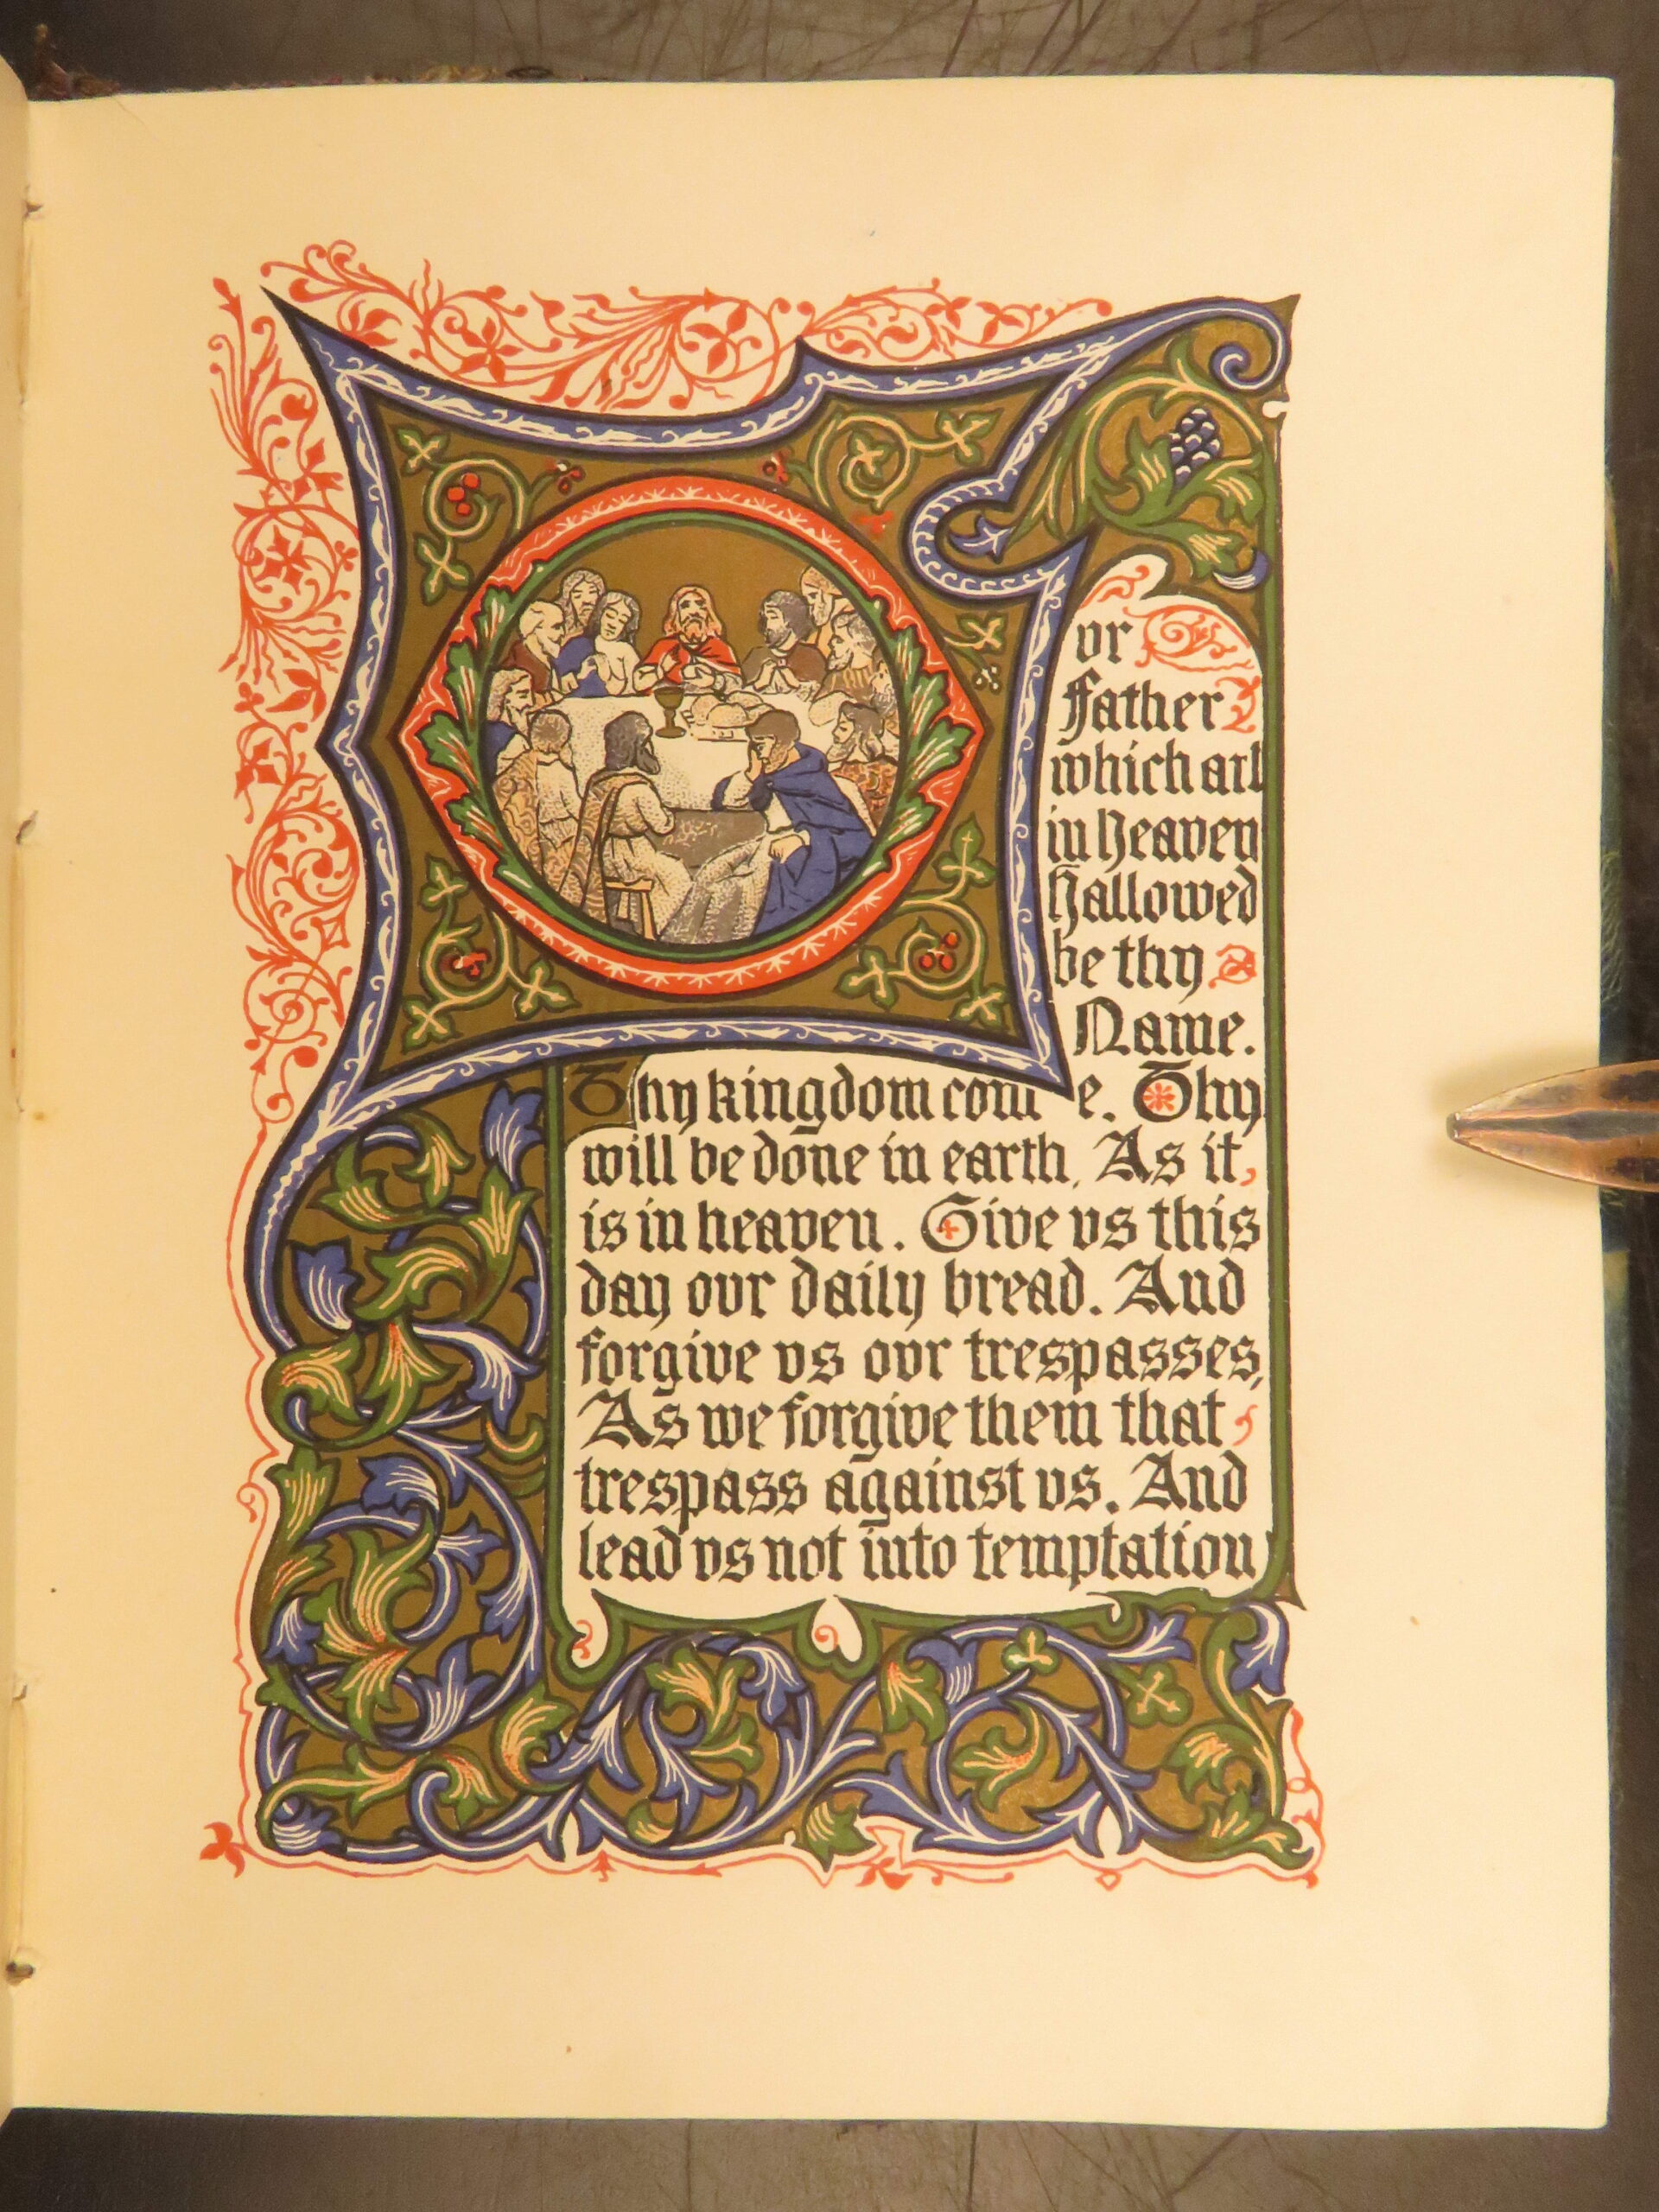 Ovr
Father
which art
in heaven
Hallowed
be thy
Name.
Thy kingdom come. Thy
will be done in earth, As it
is in heaven. Give vs this
day ovr daily bread. And
forgive vs ovr trespasses,
As we forgive them that
trespass against vs. And
lead vs not into temptation